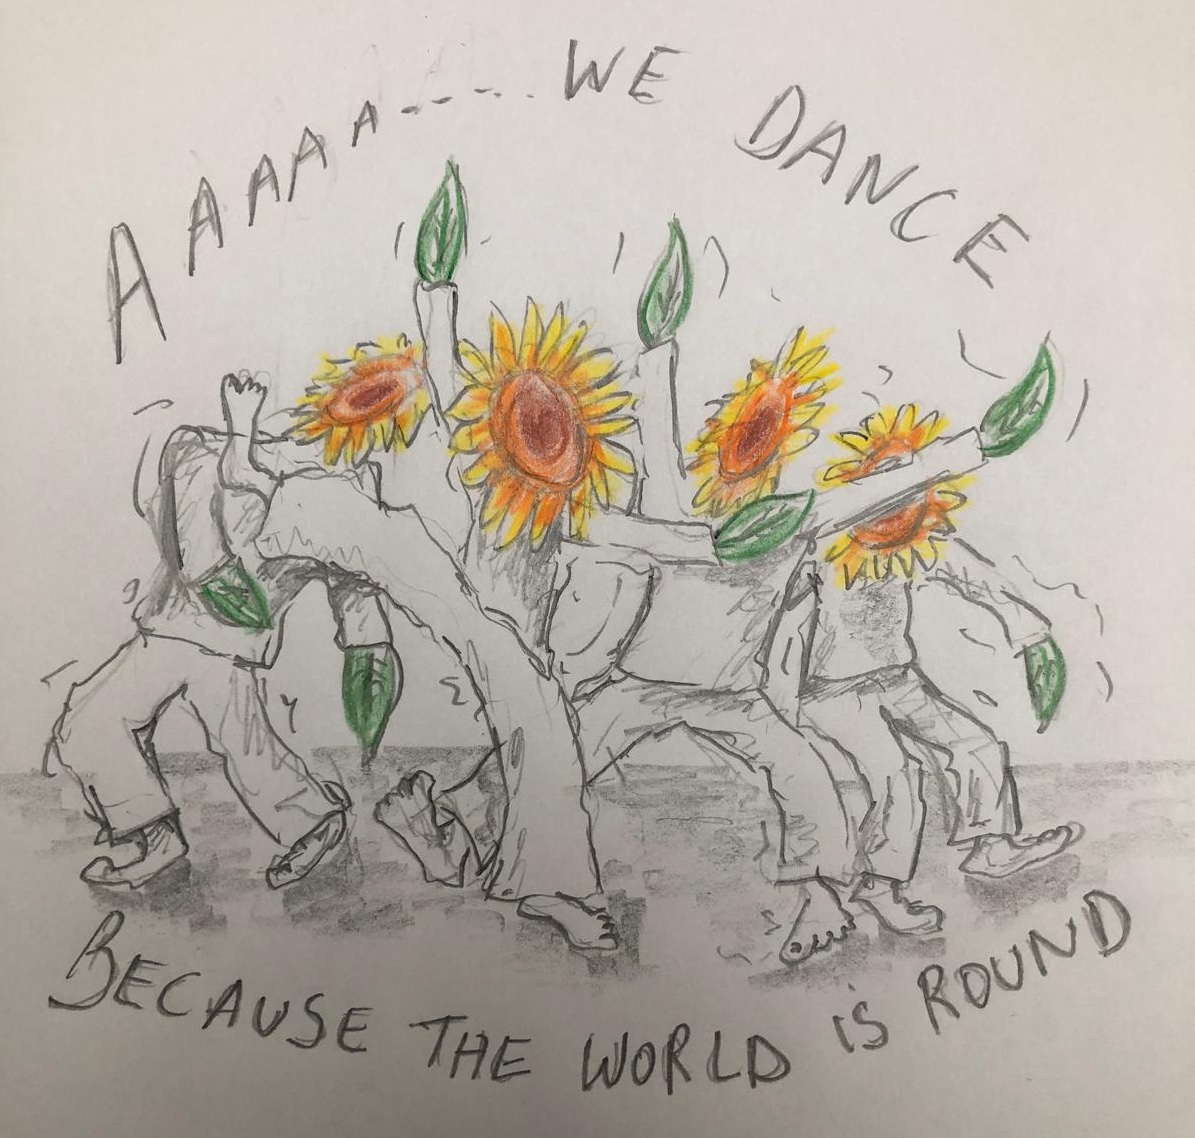 AAAAA----.. WE DANCE
BECAUSE THE WORLD iS ROUND